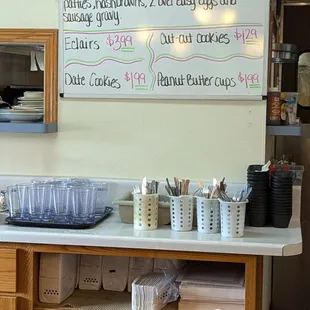 patties, hashbrowns, 2 over easy eggs and
sausage gravy.
Eclairs $3.99
Cut-out cookies $1.29
Date Cookies $1.99
Peanut Butter cups $1.99